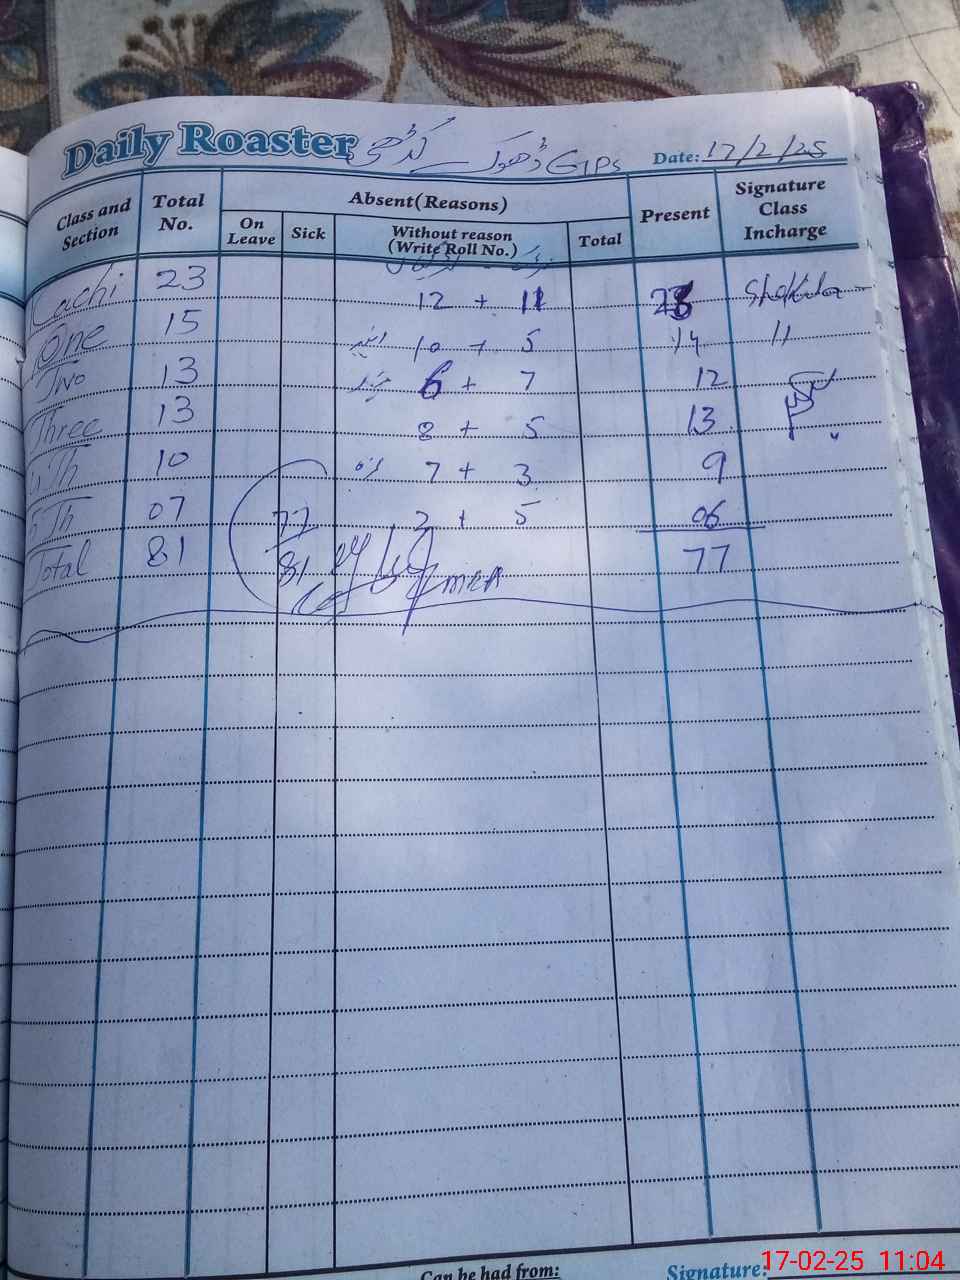 Daily Roaster GPS Date: 17/2/25
Class and Section Total No. Absent(Reasons) Present Signature Class Incharge
On Leave Sick Without reason (Write Roll No.) Total
Cachi 23 12 + 11 23 Shakila
One 15 10 + 5 14 11
Two 13 6 + 7 12
Three 13 8 + 5 13
4Th 10 7 + 3 9
5Th 07 77 2 + 5 06
Total 81 81 MEA 77
Can be had from: Signature:
17-02-25 11:04